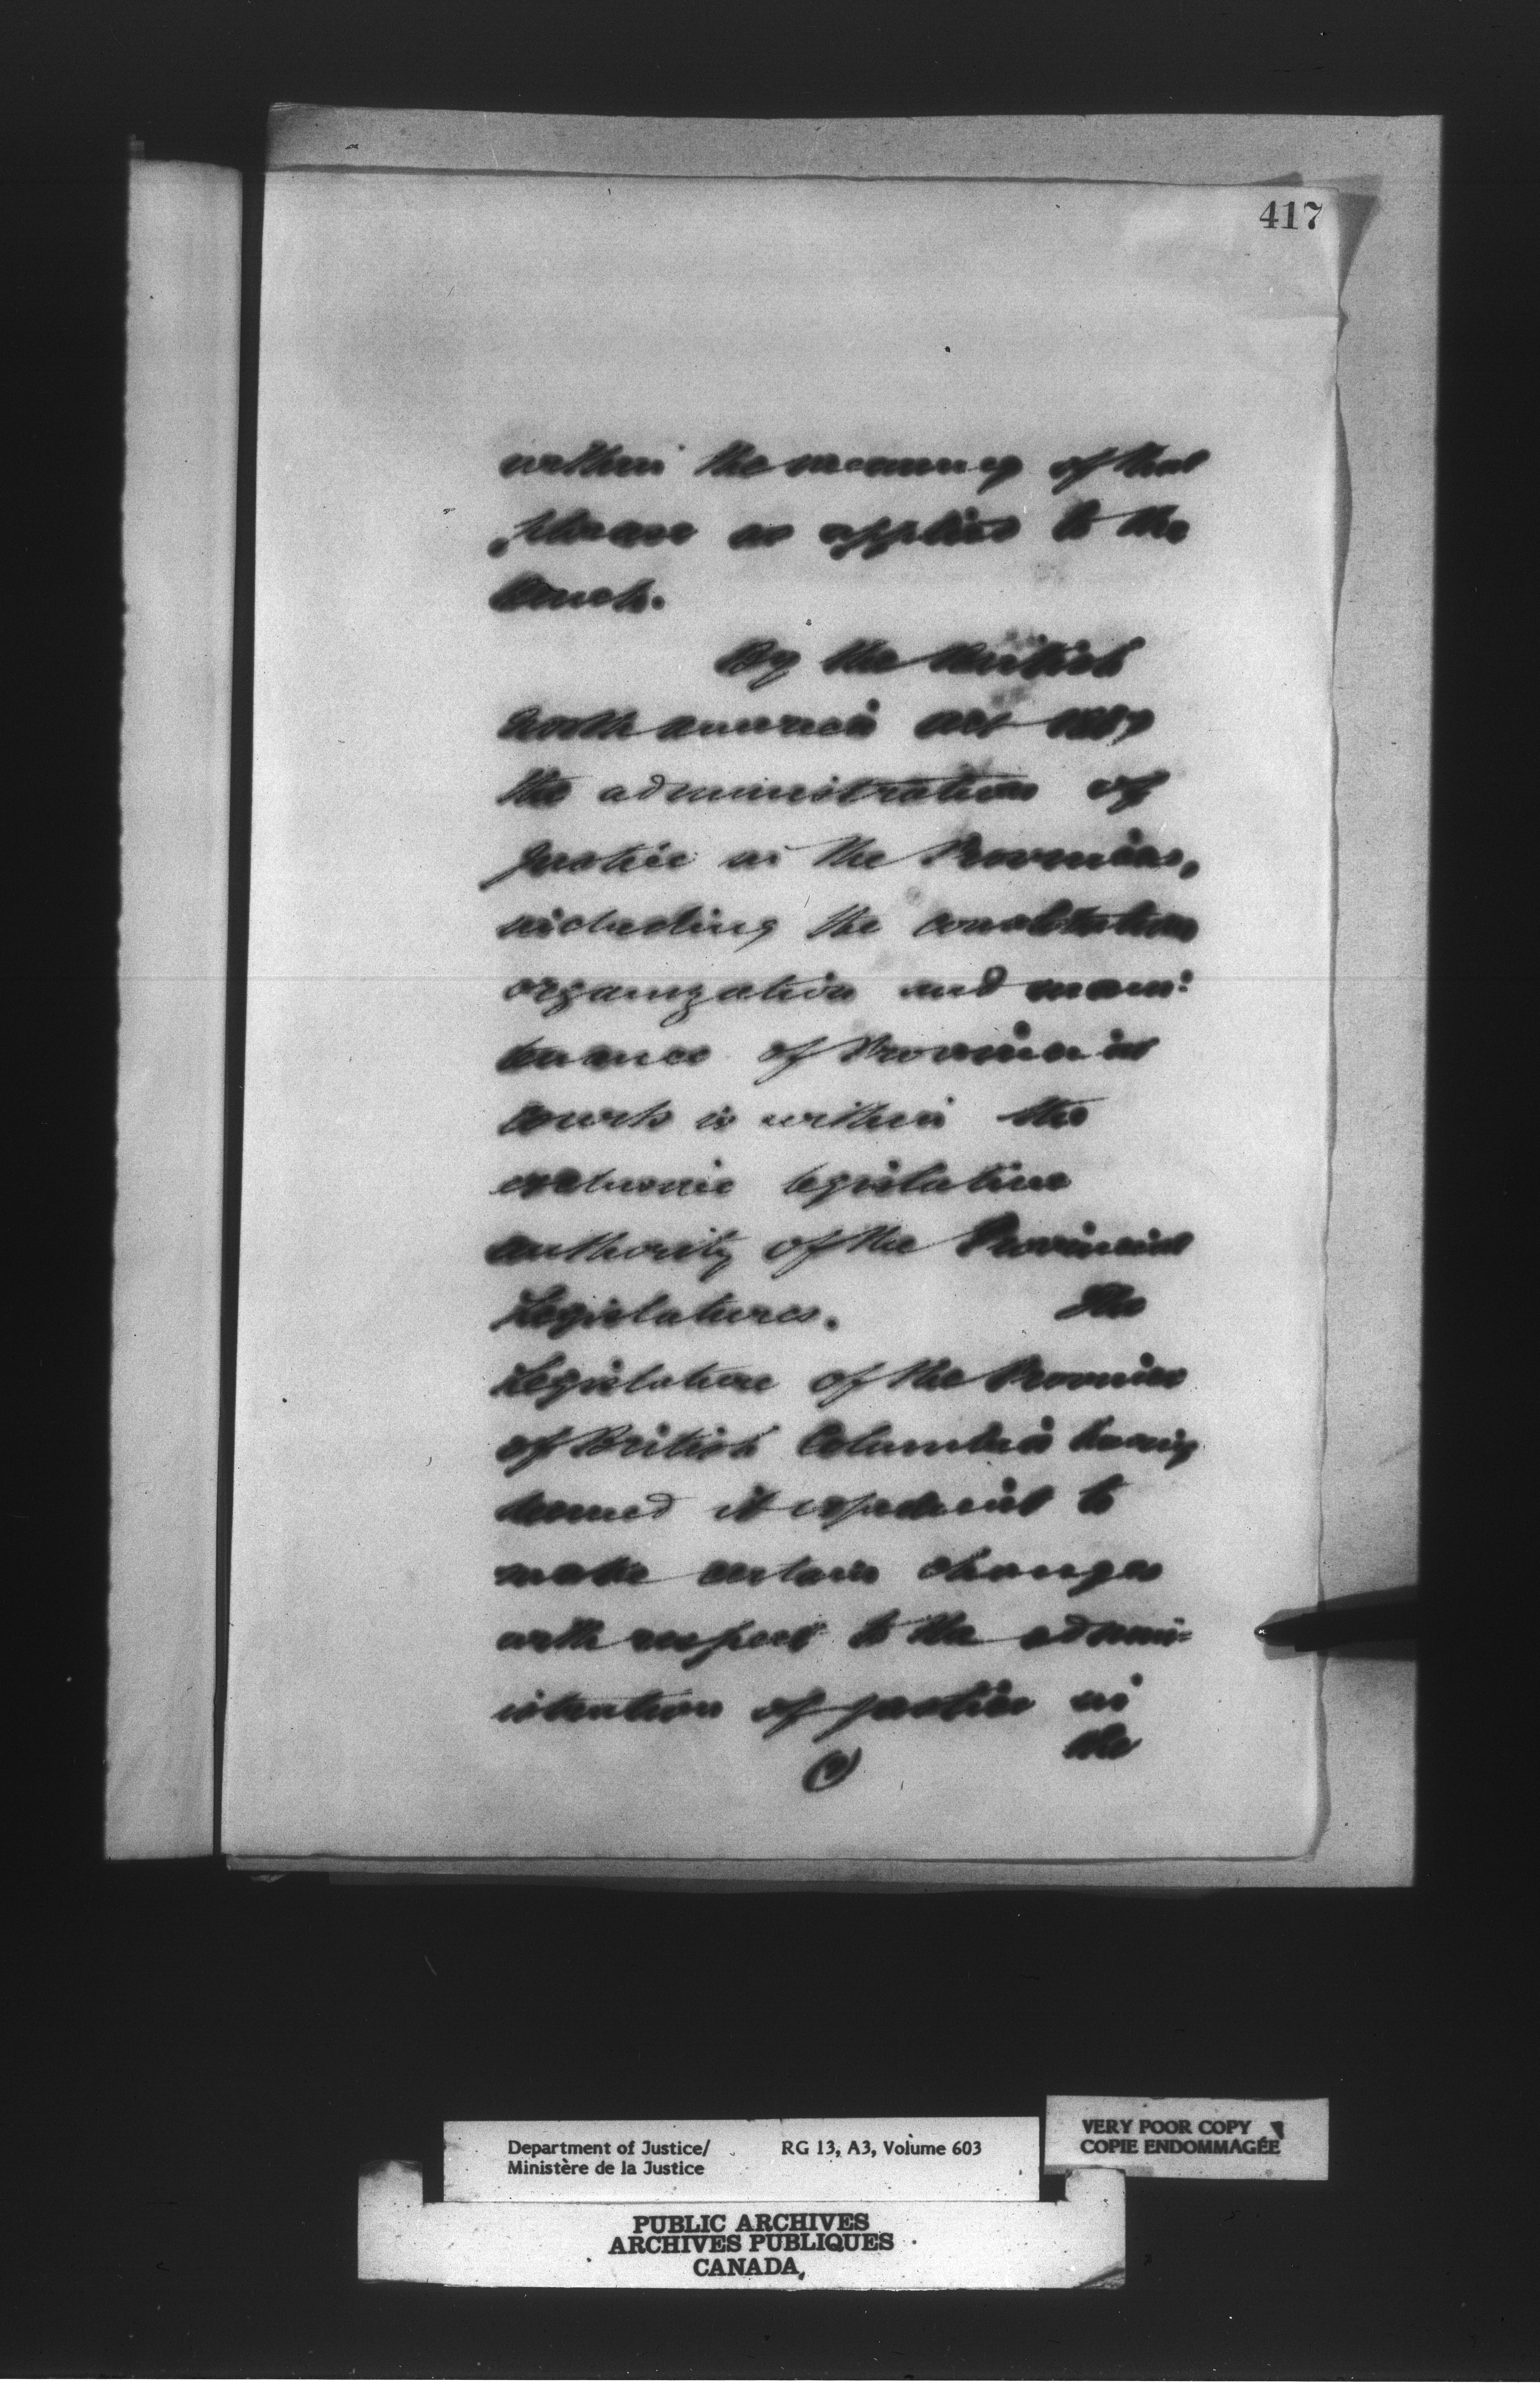 417
within the meaning of that
phrase as applied to the
Bench.
By the British
North America Act 1867
the administration of
justice in the Provinces,
including the constitution
organization and main:
tenance of Provincial
Courts is within the
exclusive legislative
authority of the Provincial
Legislatures. The
Legislature of the Province
of British Columbia having
deemed it expedient to
make certain changes
with respect to the admin=
istration of justice in
the
Department of Justice/ RG 13, A3, Volume 603
Ministère de la Justice
VERY POOR COPY
COPIE ENDOMMAGÉE
PUBLIC ARCHIVES
ARCHIVES PUBLIQUES
CANADA